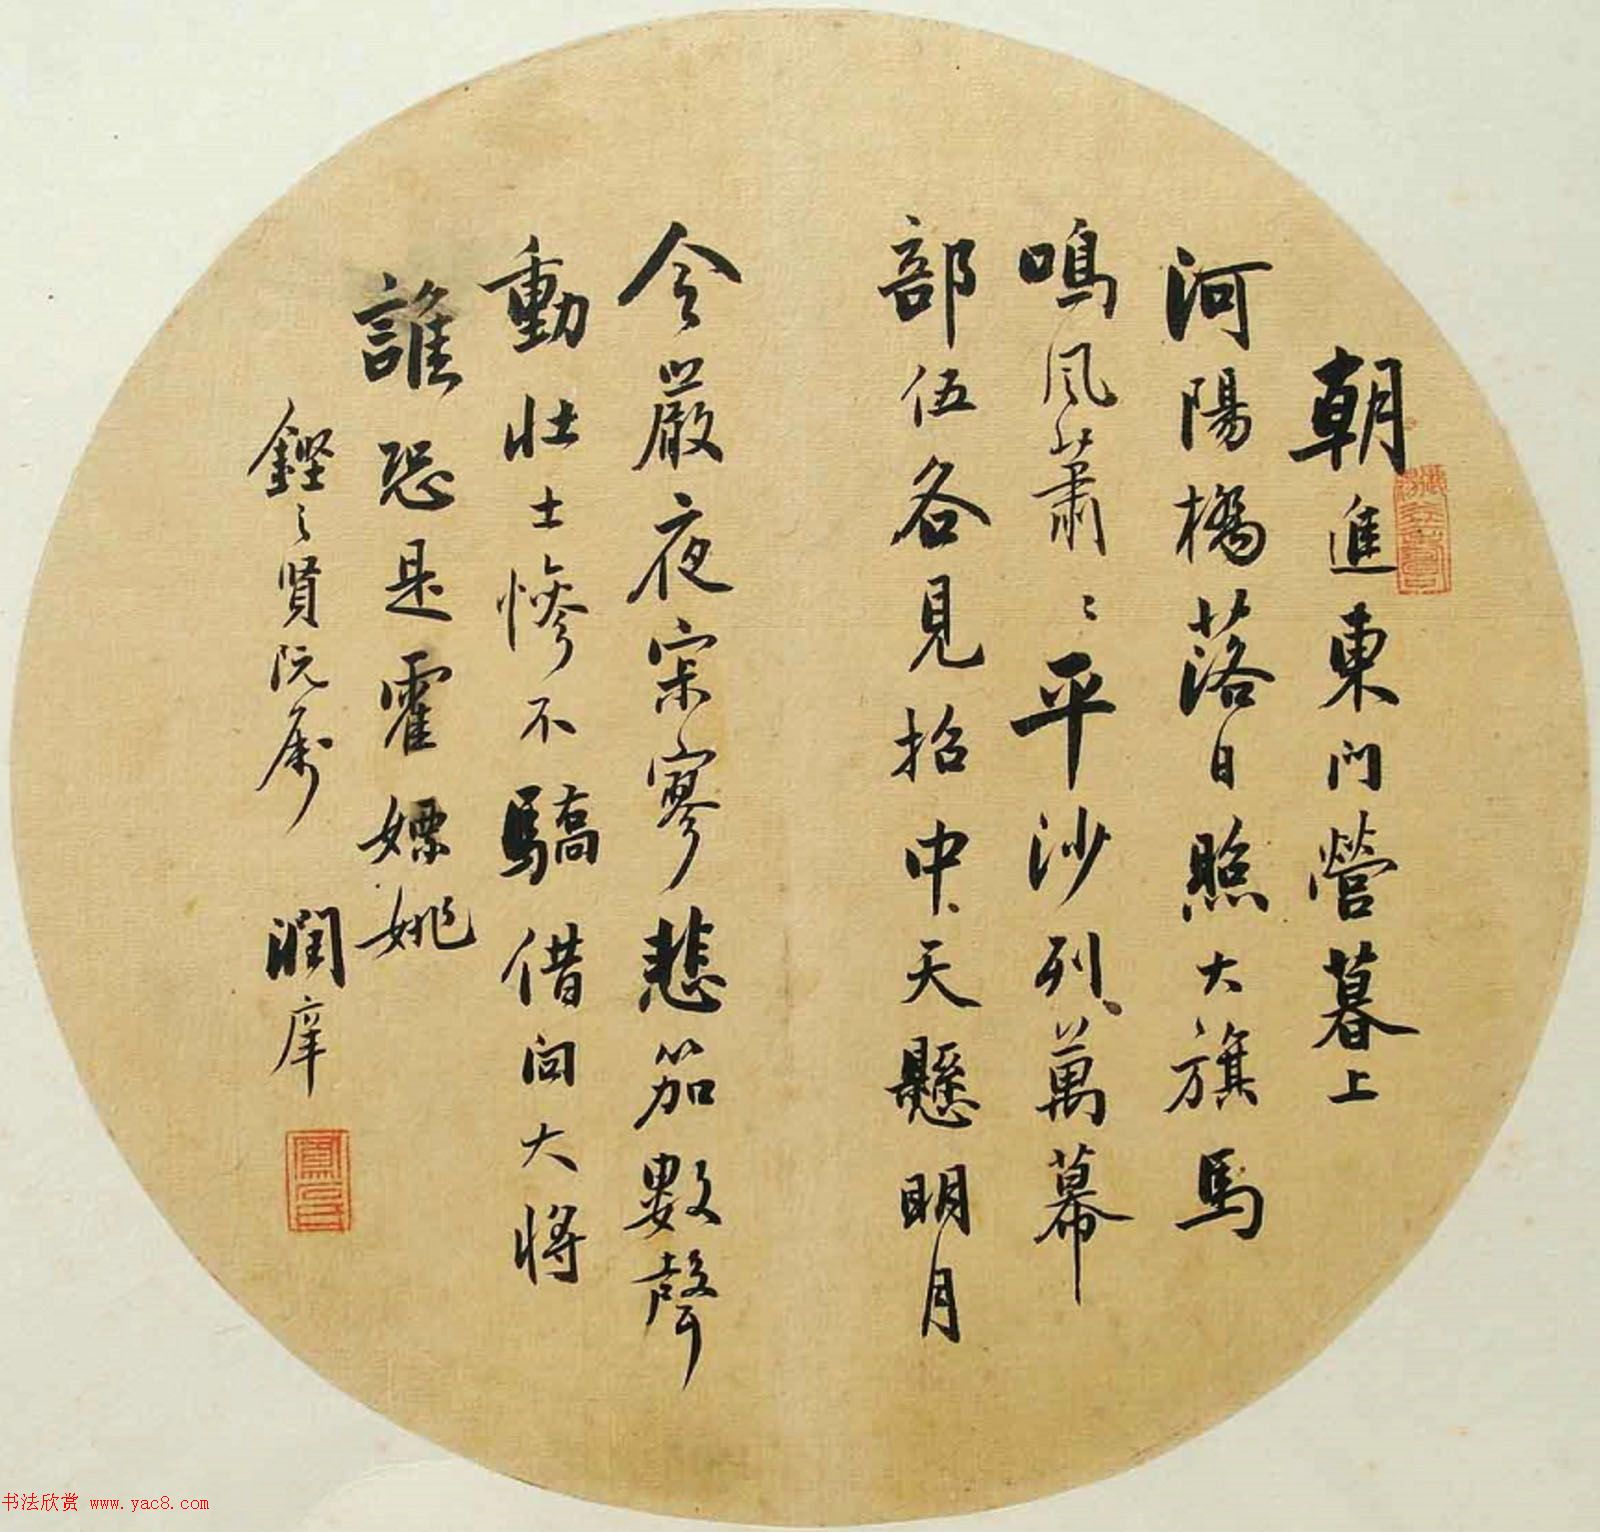 朝進東門營暮上
河陽橋落日照大旗馬
鳴風蕭〻平沙列萬幕
部伍各見招中天懸明月
令嚴夜寂寥悲笳數聲
動壯士慘不驕借问大將
誰恐是霍嫖姚
鏗之賢阮屬 潤庠
书法欣赏 www.yac8.com